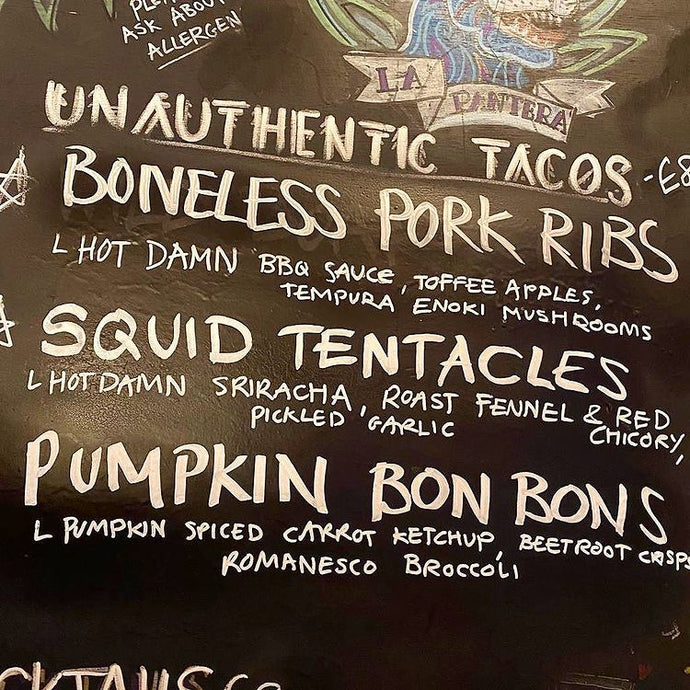 ASK ABOUT
ALLERGEN
LA PANTERA
UNAUTHENTIC TACOS - £8
BONELESS PORK RIBS
L HOT DAMN BBQ SAUCE, TOFFEE APPLES,
TEMPURA ENOKI MUSHROOMS
SQUID TENTACLES
L HOT DAMN SRIRACHA, ROAST FENNEL & RED
PICKLED GARLIC CHICORY,
PUMPKIN BON BONS
L PUMPKIN SPICED CARROT KETCHUP, BEETROOT CRISPS
ROMANESCO BROCCOLI